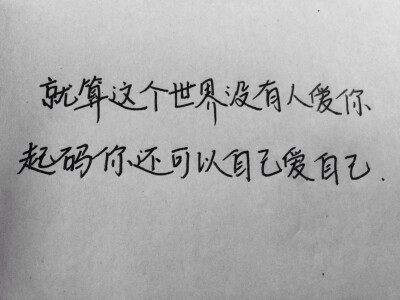 就算这个世界没有人爱你、
起码你还可以自己爱自己.